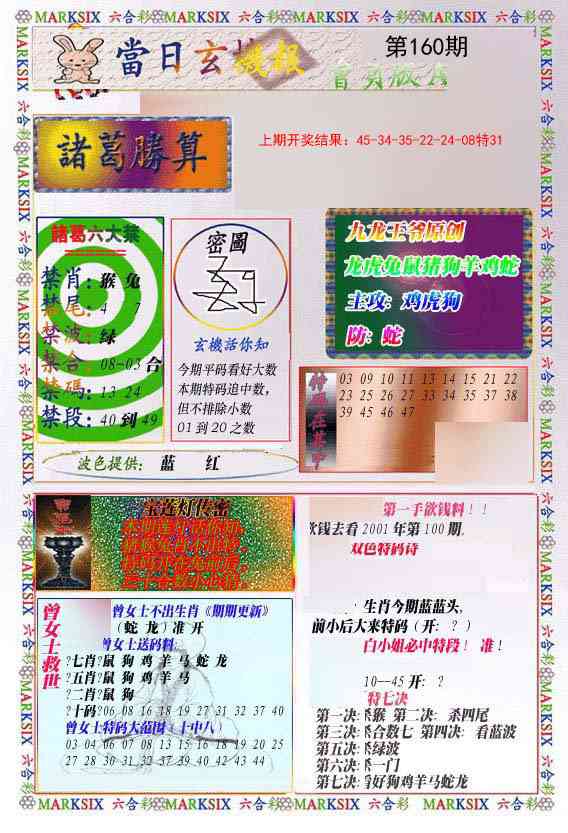 MARKSIX 六合彩 MARKSIX 六合彩 MARKSIX 六合彩 MARKSIX 六合彩
當日玄機报
第160期
首页版A
諸葛勝算
上期开奖结果：45-34-35-22-24-08特31
諸葛六大禁
禁肖：猴 兔
禁尾：4 7
禁波：绿
禁合：08-03 合
禁碼：13 24
禁段：40 到 49
密圖
玄機活你知
今期平码看好大数
本期特码追中数，
但不排除小数
01 到 20 之数
九龙王爷原创
龙虎兔鼠猪狗羊鸡蛇
主攻：鸡虎狗
防：蛇
特码在其中
03 09 10 11 13 14 15 21 22
23 25 26 27 33 34 35 37 38
39 45 46 47
波色提供： 蓝 红
宝莲灯传密
曾女士救世
曾女士不出生肖《期期更新》
（蛇 龙）准 开
曾女士送码料
?七肖?鼠 狗 鸡 羊 马 蛇 龙
?五肖?鼠 狗 鸡 羊 马
?二肖?鼠 狗
?十码?06 08 16 18 19 27 31 32 37 40
曾女士特码大范围（十中八）
03 04 06 07 08 13 15 16 18 19 20 25
27 28 30 31 32 37 39 40 42 43 44
第一手欲钱料！！
欲钱去看 2001 年第 100 期。
双色特码诗
生肖今期蓝蓝头，
前小后大来特码（开：？）
白小姐必中特段！ 准！
10--45 开：？
特七决
第一决：杀猴 第二决： 杀四尾
第三决：杀合数七 第四决： 看蓝波
第五决：杀绿波
第六决：杀一门
第七决：看好狗鸡羊马蛇龙
MARKSIX 六合彩 MARKSIX 六合彩 MARKSIX 六合彩 MARKSIX 六合彩